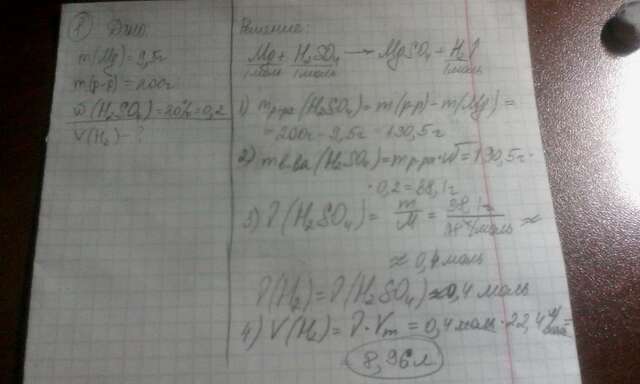 ① Дано:
m(Mg) = 9,5г
m(р-р) = 200г
ω(H₂SO₄) = 20% = 0,2
V(H₂) - ?
Решение:
Mg + H₂SO₄ → MgSO₄ + H₂↑
1моль 1моль 1моль
1) m р-ра (H₂SO₄) = m(р-р) - m(Mg) =
= 200г - 9,5г = 190,5г
2) m в-ва (H₂SO₄) = m р-ра · ω = 190,5г ·
· 0,2 = 38,1г
3) ν(H₂SO₄) = m/M = 38,1г / 98г/моль ≈
≈ 0,4 моль
ν(H₂) = ν(H₂SO₄) ≈ 0,4 моль
4) V(H₂) = ν · Vm = 0,4 моль · 22,4 л/моль =
8,96 л